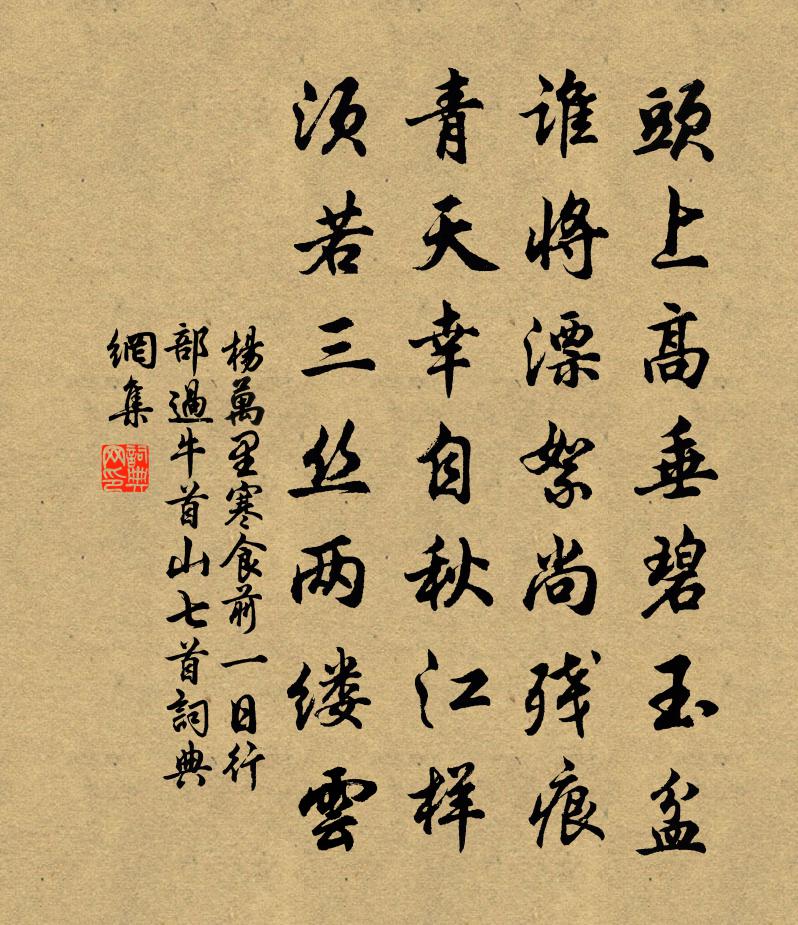 頭上高垂碧玉盆
谁將漂絮尚残痕
青天幸自秋江样
须若三丝两缕雲
楊萬里寒食前一日行
部過牛首山七首詞典
網集
詞典
网印